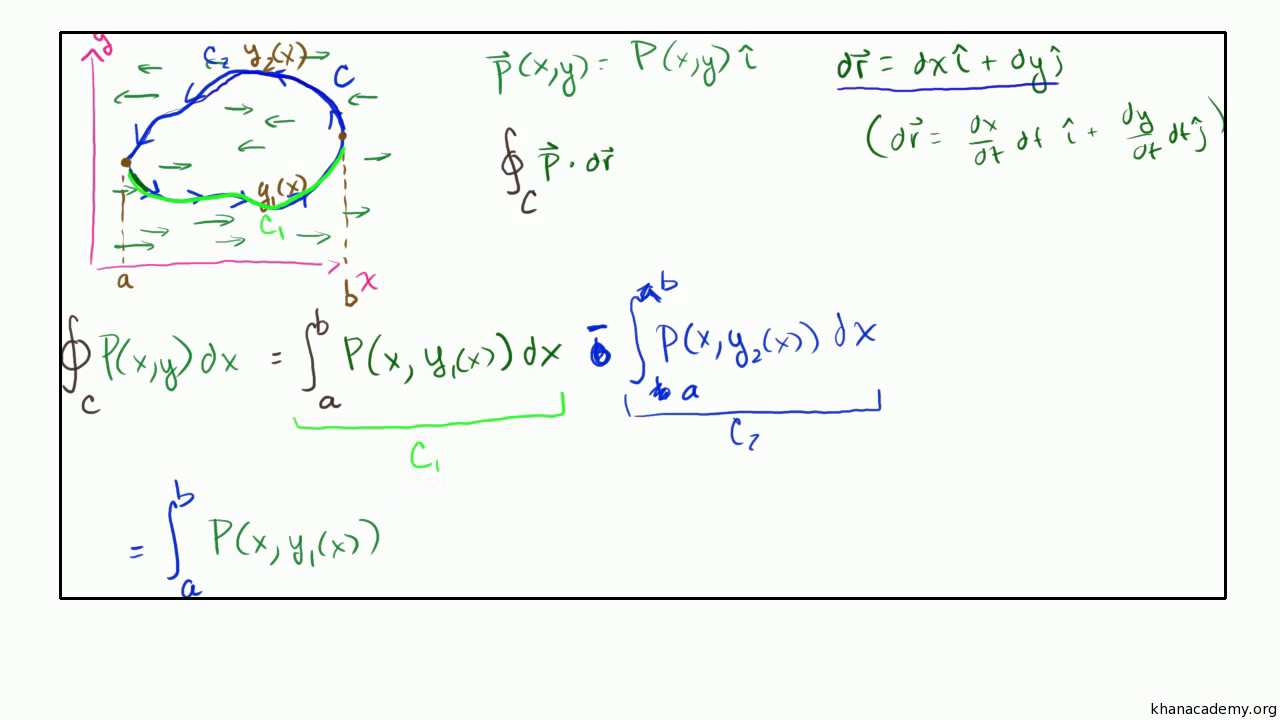 y
C₂ y₂(x)
C
y₁(x)
C₁
a
b x
p⃗(x,y) = P(x,y) î
∮_C p⃗ · dr⃗
dr⃗ = dx î + dy ĵ
(dr⃗ = dx/dt dt î + dy/dt dt ĵ)
∮_C P(x,y) dx = ∫_a^b P(x, y₁(x)) dx - ∫_a^b P(x, y₂(x)) dx
C₁
C₂
= ∫_a^b P(x, y₁(x))
khanacademy.org